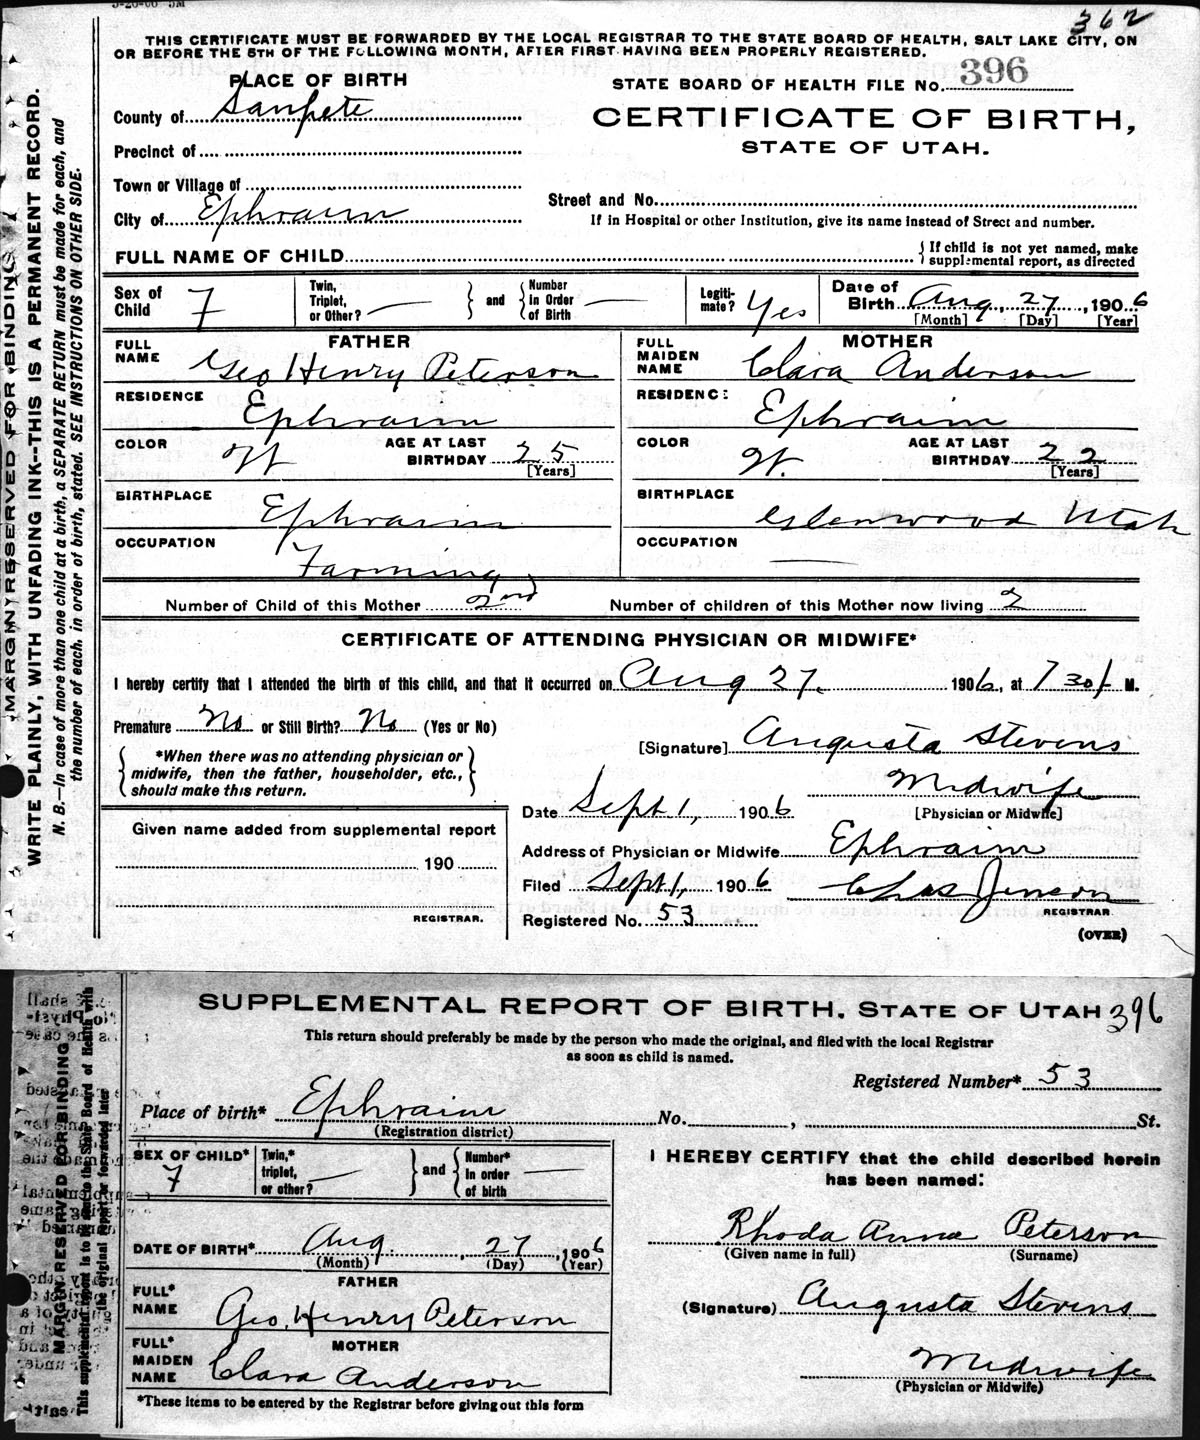 362
THIS CERTIFICATE MUST BE FORWARDED BY THE LOCAL REGISTRAR TO THE STATE BOARD OF HEALTH, SALT LAKE CITY, ON
OR BEFORE THE 5TH OF THE FOLLOWING MONTH, AFTER FIRST HAVING BEEN PROPERLY REGISTERED.
MARGIN RESERVED FOR BINDING
WRITE PLAINLY, WITH UNFADING INK--THIS IS A PERMANENT RECORD.
N. B.—In case of more than one child at a birth, a SEPARATE RETURN must be made for each, and
the number of each, in order of birth, stated. SEE INSTRUCTIONS ON OTHER SIDE.
PLACE OF BIRTH
County of Sanpete
Precinct of
Town or Village of
City of Ephraim
STATE BOARD OF HEALTH FILE No. 396
CERTIFICATE OF BIRTH,
STATE OF UTAH.
Street and No.
If in Hospital or other Institution, give its name instead of Street and number.
FULL NAME OF CHILD
If child is not yet named, make
supplemental report, as directed
Sex of Child F
Twin, Triplet, or Other? —
and
Number in Order of Birth —
Legitimate? Yes
Date of Birth Aug. 27, 1906
[Month] [Day] [Year]
FATHER
FULL NAME Geo Henry Peterson
RESIDENCE Ephraim
COLOR W
AGE AT LAST BIRTHDAY 25
[Years]
BIRTHPLACE Ephraim
OCCUPATION Farming
MOTHER
FULL MAIDEN NAME Clara Anderson
RESIDENCE Ephraim
COLOR W.
AGE AT LAST BIRTHDAY 22
[Years]
BIRTHPLACE Glenwood Utah
OCCUPATION —
Number of Child of this Mother 2nd
Number of children of this Mother now living 2
CERTIFICATE OF ATTENDING PHYSICIAN OR MIDWIFE*
I hereby certify that I attended the birth of this child, and that it occurred on Aug 27, 1906, at 7 30 M.
Premature No or Still Birth? No (Yes or No)
*When there was no attending physician or
midwife, then the father, householder, etc.,
should make this return.
[Signature] Augusta Stevens
Midwife
[Physician or Midwife]
Date Sept 1, 1906
Address of Physician or Midwife Ephraim
Filed Sept 1, 1906
Chas Jenson
REGISTRAR
Registered No. 53
(OVER)
Given name added from supplemental report
190
REGISTRAR.
SUPPLEMENTAL REPORT OF BIRTH. STATE OF UTAH 396
This return should preferably be made by the person who made the original, and filed with the local Registrar
as soon as child is named.
MARGIN RESERVED FOR BINDING
This supplemental report is to be sent to the State Board of Health with
the original report or forwarded later
Registered Number* 53
Place of birth* Ephraim No. , St.
(Registration district)
SEX OF CHILD* F
Twin,* triplet, or other? —
and
Number* in order of birth —
DATE OF BIRTH* Aug. , 27 , 1906
(Month) (Day) (Year)
FATHER
FULL* NAME Geo. Henry Peterson
MOTHER
FULL* MAIDEN NAME Clara Anderson
*These items to be entered by the Registrar before giving out this form
I HEREBY CERTIFY that the child described herein
has been named:
Rhoda Anna Peterson
(Given name in full) (Surname)
(Signature) Augusta Stevens
Midwife
(Physician or Midwife)